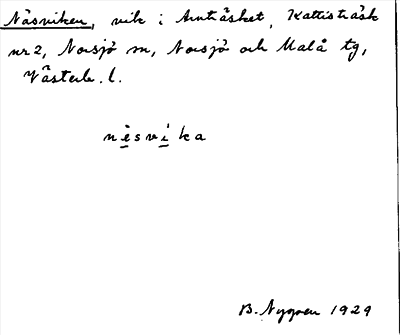 Näsviken, vik i Arnträsket, Kattisträsk
nr 2, Norsjö sn, Norsjö och Malå tg,
Västerb. l.
nèsvíka
B. Nygren 1929